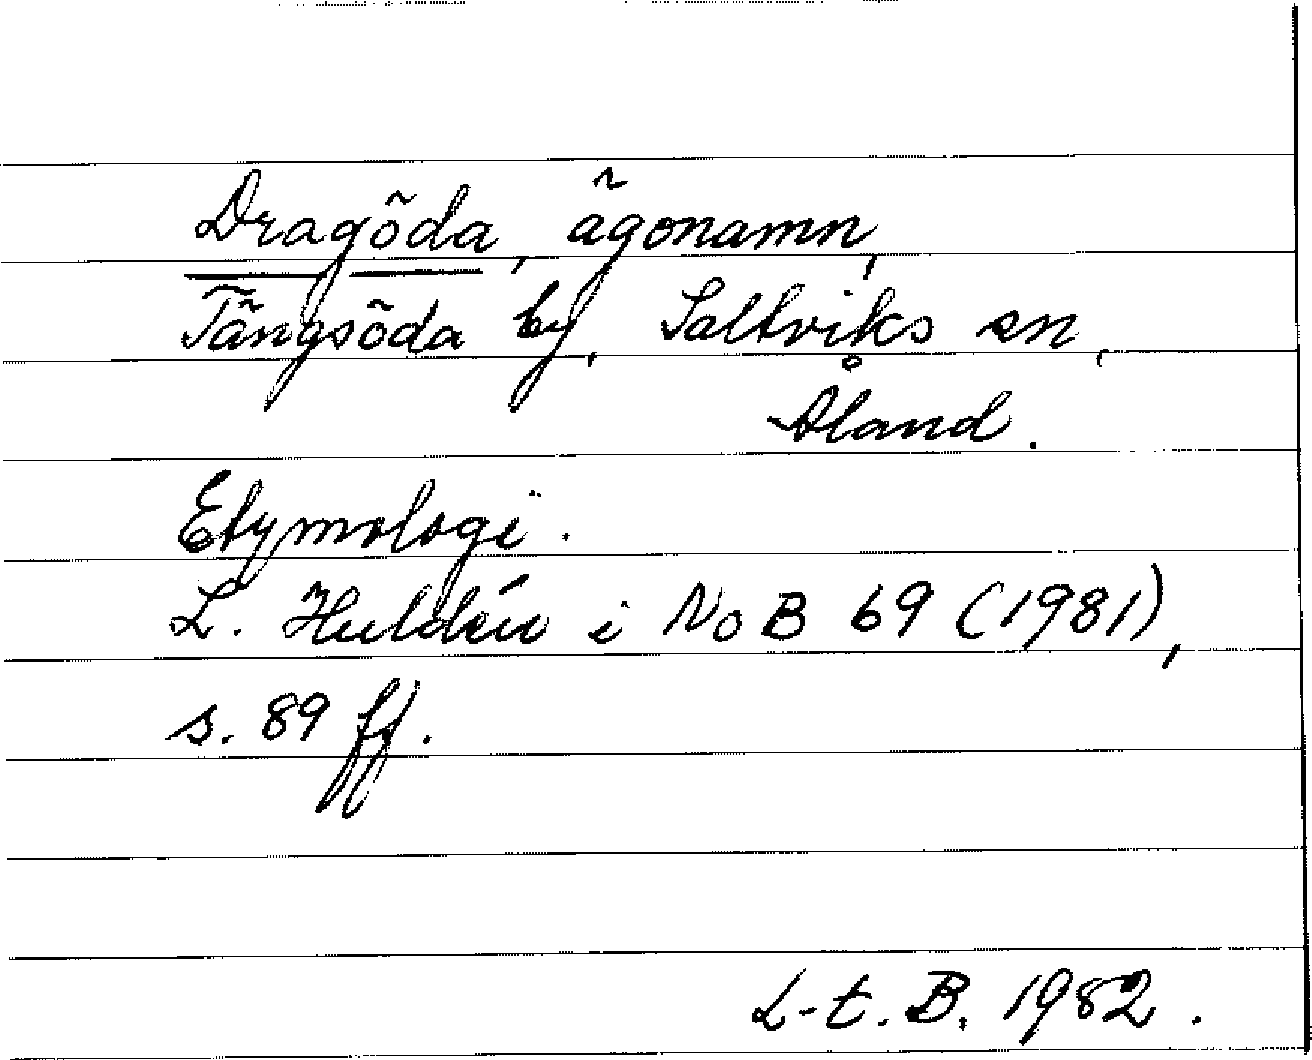 Dragöda, ägonamn,
Tängsöda by, Saltviks sn,
Åland.
Etymologi.
L. Huldén i NoB 69 (1981),
s. 89 ff.
L-t. B. 1982.